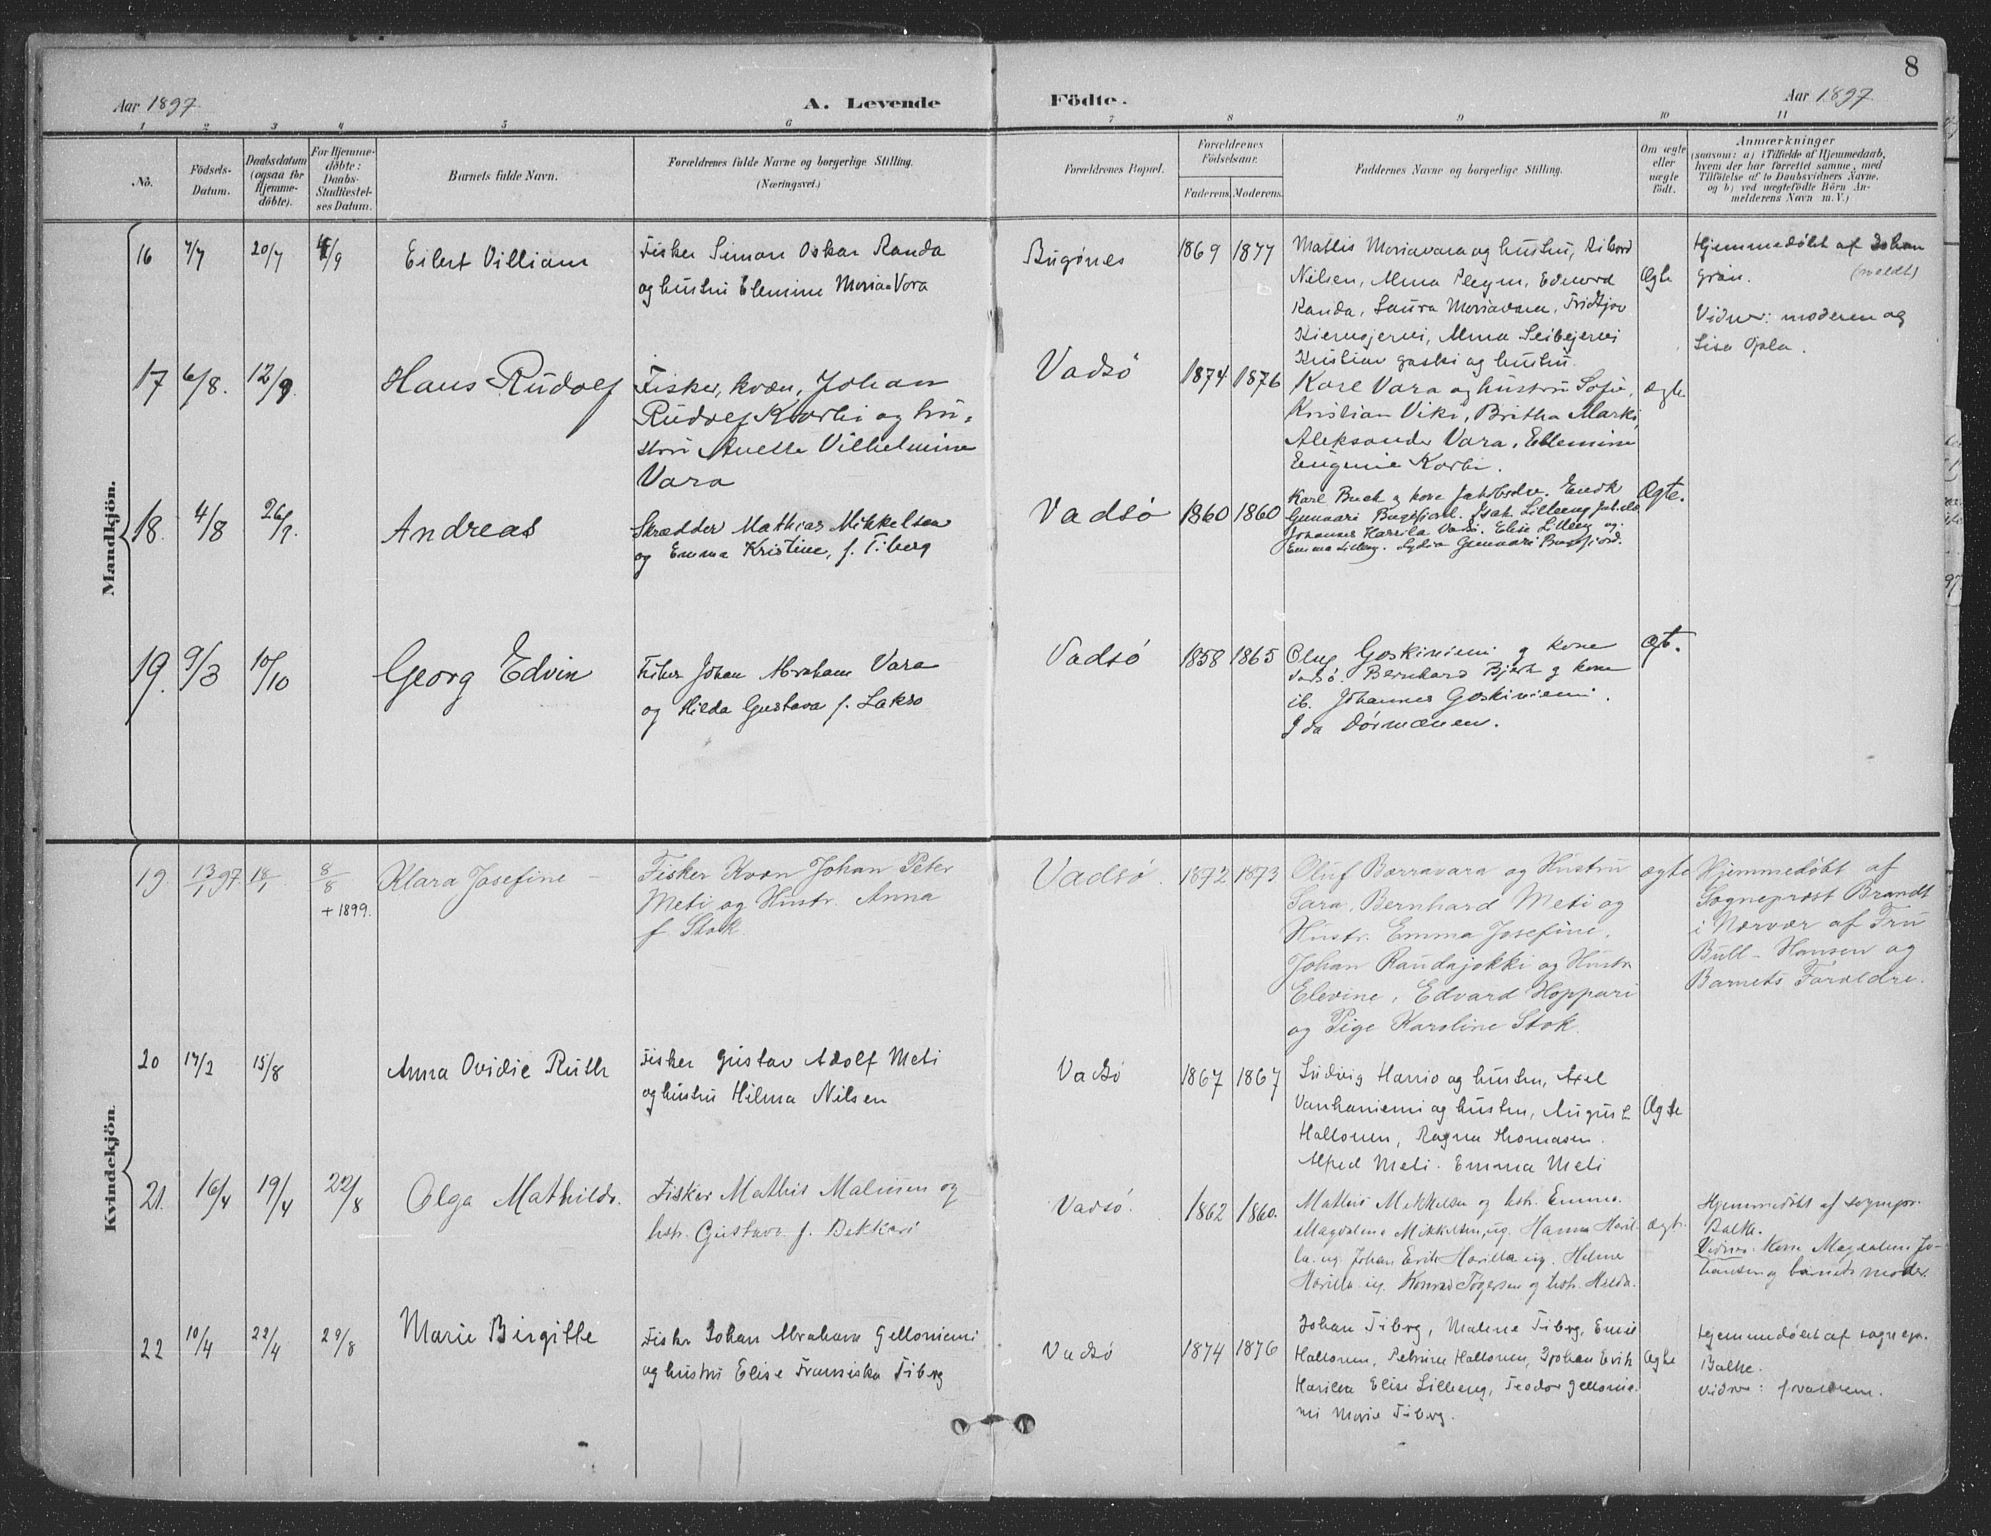 8
Aar 1897.
A. Levende
Födte.
Aar 1897.
1 2 3 4 5 6 7 8 9 10 11
No.
Födsels-
Datum.
Daabsdatum
(ogsaa for
Hjemme-
döbte).
For Hjemme-
döbte:
Daabs-
Stadfæstel-
ses Datum.
Barnets fulde Navn.
Forældrenes fulde Navne og borgerlige Stilling.
(Næringsvei.)
Forældrenes Bopæl.
Forældrenes
Födselsaar.
Faderens.
Moderens.
Faddernes Navne og borgerlige Stilling.
Om ægte
eller
uægte
födt.
Anmærkninger
(saasom: a) i Tilfælde af Hjemmedaab,
hvem der har forrettet samme, med
Tilföielse af to Daabsvidners Navne,
og b) ved uægtefödte Börn An-
melderens Navn m. V.)
Mandkjön.
16
7/7
20/7
/9
Eilert Villiam
Fisker Simon Oskar Randa
og hustru Elemine Moriavara
Bugönes
1869
1877
Mattis Moriavara og hustru,
Nilsen, Alma Pleym, Edvard
Randa, Laura Moriavara, Fridtjov
Alma
Kristian og hustru.
Ægte
Hjemmedöbt af Johan
Grän. (meldt)
Vidner: moderen og
Lisa
17
6/8.
12/9.
Hans Rudolf
Fisker, kvæn, Johan
Rudolf Korbi og hu-
stru Anette Vilhelmine
Vara
Vadsö
1874
1876
Karl Vara og hustru Sofie,
Kristian Viki, Britha Marki,
Aleksander Vara, Ellemine
Eugenie Korbi.
ægte
18.
4/8
26/
Andreas
Skrædder Mathias Mikkelsen
og Emma Kristine, f. Tiberg
Vadsö
1860
1860
Karl Buch og kone
Gunnari Isak Lilleeng
Johannes Harrila Vadsö. Elise Lilleeng og
Emma Lilleeng. Lydia Gunnari
Ægte.
19.
9/3
10/10
Georg Edvin
Fisker Johan Abraham Vara
og Hilda Gustava f. Lakso
Vadsö
1858
1865
Olug Goskiniemi og kone
Vadsö. Bernhard Bjerk og kone
ib. Johannes Goskiniemi.
Ida
Ægt.
Kvindekjön.
19.
13/1 97.
18/1
8/8
+ 1899.
Klara Josefine
Fisker Kvæn Johan Peter
Meti og Hustr. Anna
f. Stok.
Vadsö.
1872
1873
Oluf Barravara og Hustru
Sara, Bernhard Meti og
Hustr. Emma Josefine,
Johan Randajokki og Hustr
Elevine, Edvard Hoppari
og Pige Karoline Stok.
ægte
Hjemmedöbt af
Sogneprest Brandt
i Nærvær af Fru
Bull-Hansen og
Barnets Forældre.
20
17/2
15/8
Anna Ovidie Ruth
Fisker Gustav Adolf Meti
og hustru Hilma Nilsen
Vadsö
1867
1867
Ludvig Harrio og hustru, Axel
Vanhaniemi og hustru, August
Hallonen, Ragna Thomasen.
Alfred Meti. Emma Meti
Ægte
21.
16/4
19/4
22/8
Olga Mathilde.
Fisker Mathis Malinen og
hstr. Gustava f. Bekkari
Vadsö.
1862
1860.
Mathis Mikkelsen og hstr. Emma.
Magdalena Mikkelsen ug. Hanna Haril-
la. ug. Johan Erik Harilla ug. Helene
Harilla ug. Konrad Jögersen og hstr. Hilda.
ægt.
Hjemmedöbt af sognepr.
Balke.
Vidner: Kone Magdalene Jo-
hansen og barnets moder.
22
10/4
22/4
29/8
Marie Birgitte
Fisker Johan Abraham Gellaniemi
og hustru Elise Franciska Tiberg
Vadsö
1874
1876
Johan Tiberg, Malene Tiberg, Emil
Hallonen, Petrine Hallonen, Johan Erik
Harilla Elise Lilleeng, Teodor Gellanie-
mi Marie Tiberg.
Ægte
Hjemmedöbt af sognepr.
Balke.
Vidner: forældrene.